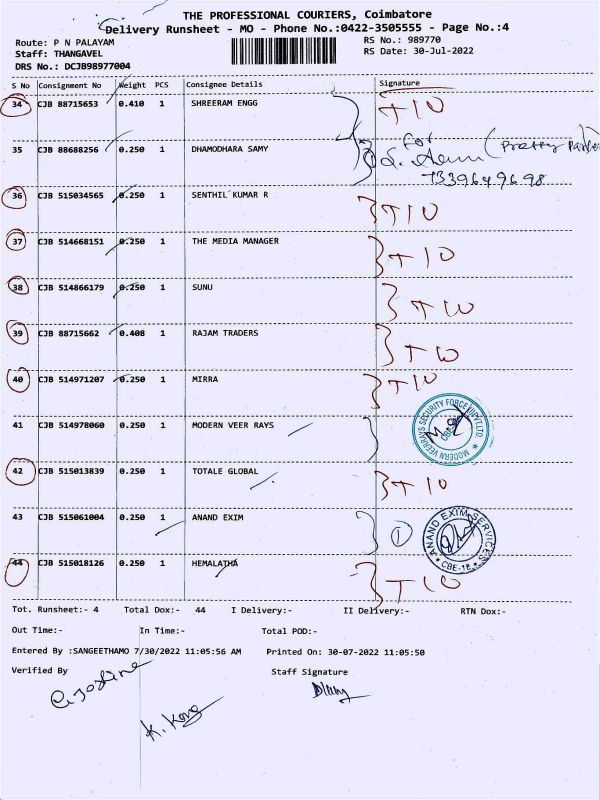 THE PROFESSIONAL COURIERS, Coimbatore
Delivery Runsheet - MO - Phone No.:0422-3505555 - Page No.:4
Route: P N PALAYAM RS No.: 989770
Staff: THANGAVEL RS Date: 30-Jul-2022
DRS No.: DCJB98977004
S No Consignment No Weight PCS Consignee Details Signature
34 CJB 88715653 0.410 1 SHREERAM ENGG T10
35 CJB 88688256 0.250 1 DHAMODHARA SAMY For
7339649698
36 CJB 515034565 0.250 1 SENTHIL KUMAR R T10
37 CJB 514668151 0.250 1 THE MEDIA MANAGER T10
38 CJB 514866179 0.250 1 SUNU T10
39 CJB 88715662 0.408 1 RAJAM TRADERS T10
40 CJB 514971207 0.250 1 MIRRA T10
41 CJB 514978060 0.250 1 MODERN VEER RAYS MODERN VEERRAYS SECURITY FORCE (I) PVT.LTD CBE
42 CJB 515013839 0.250 1 TOTALE GLOBAL T10
43 CJB 515061004 0.250 1 ANAND EXIM 1 ANAND EXIM SERVICES CBE-18
44 CJB 515018126 0.250 1 HEMALATHA T10
Tot. Runsheet:- 4 Total Dox:- 44 I Delivery:- II Delivery:- RTN Dox:-
Out Time:- In Time:- Total POD:-
Entered By :SANGEETHAMO 7/30/2022 11:05:56 AM Printed On: 30-07-2022 11:05:50
Verified By Staff Signature